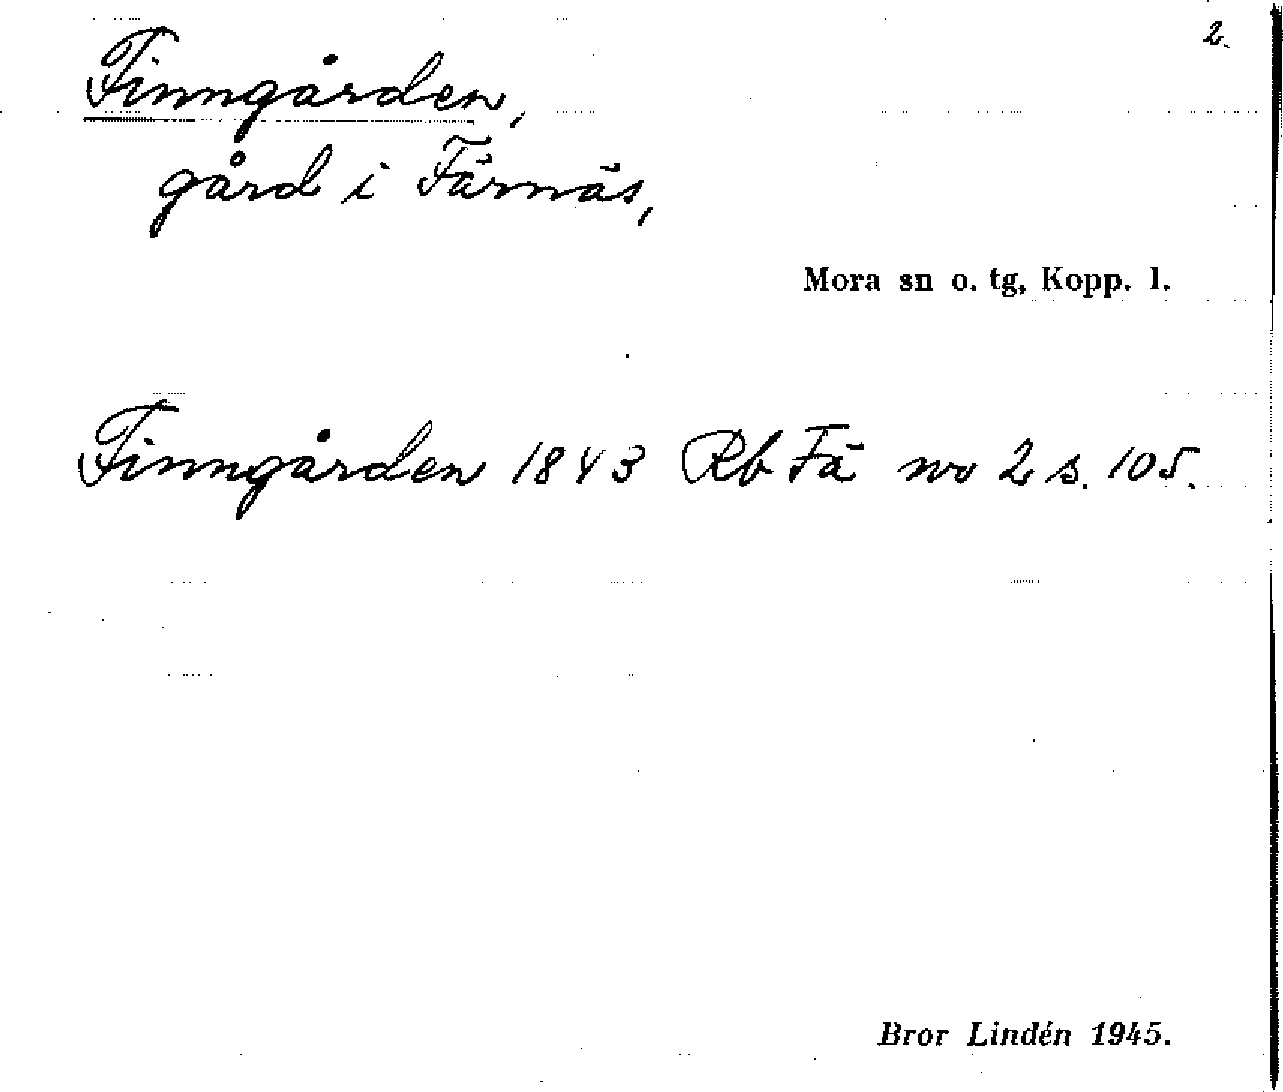 2.
Finngården,
gård i Färnäs,
Mora sn o. tg, Kopp. l.
Finngården 1843 Rb Fä no 2 s. 105.
Bror Lindén 1945.